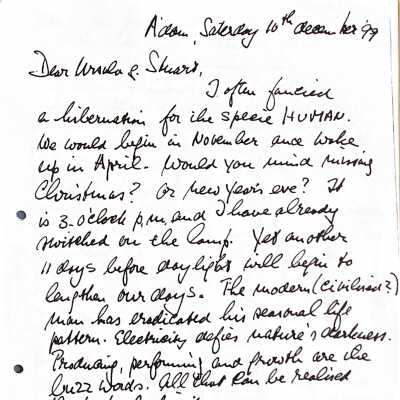 A'dam, Saturday 10th december '99
Dear Ursula & Stuart,
I often fancied
a hibernation for the specie HUMAN.
We would begin in November and wake
up in April. Would you mind missing
Christmas? Or New Year's eve? It
is 3 o'clock p.m. and I have already
switched on the lamp. Yet another
11 days before daylight will begin to
lengthen our days. The modern (civilised?)
man has eradicated his seasonal life
pattern. Electricity defies nature's darkness.
Producing, performing and growth are the
buzz words. All that can be realised